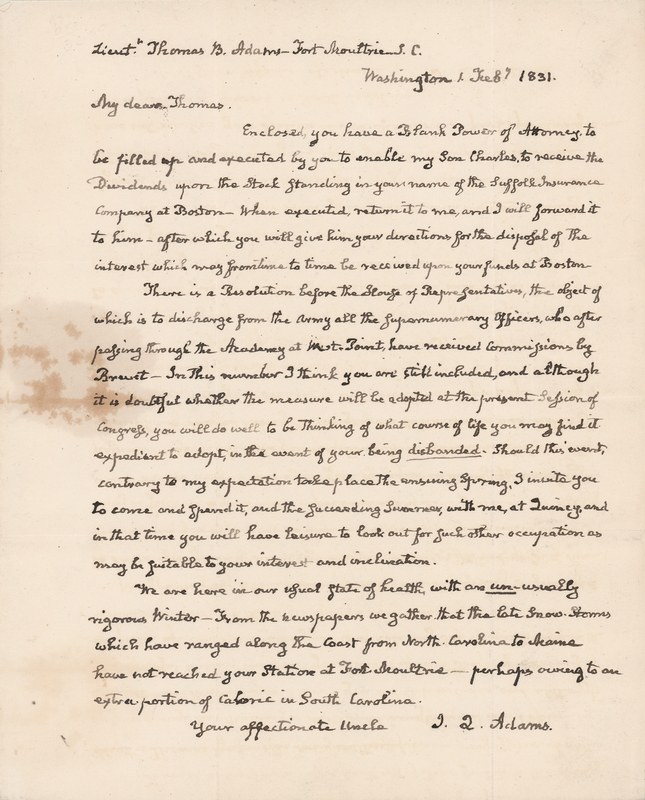 Lieut.t Thomas B. Adams—Fort Moultrie S. C.
Washington 1. Feby 1831.
My dear Thomas.
Enclosed, you have a Blank Power of Attorney, to
be filled up and executed by you to enable my Son Charles, to receive the
Dividends upon the Stock standing in your name of the Suffolk Insurance
Company at Boston—When executed, return it to me, and I will forward it
to him—after which you will give him your directions for the disposal of the
interest which may from time to time be received upon your funds at Boston—
There is a Resolution before the House of Representatives, the object of
which is to discharge from the Army all the supernumerary Officers, who after
passing through the Academy at West-Point, have received Commissions by
Brevet—In this number I think you are still included, and although
it is doubtful whether the measure will be adopted at the present Session of
Congress, you will do well to be thinking of what course of life you may find it
expedient to adopt, in the event of your being disbanded. Should this event,
contrary to my expectation take place the ensuing Spring, I invite you
to come and spend it, and the succeeding Summer, with me, at Quincy, and
in that time you will have leisure to look out for such other occupation as
may be suitable to your interest and inclination.
We are here in our usual state of health, with an un-usually
rigorous Winter—From the newspapers we gather that the late Snow-Storms
which have ranged along the Coast from North-Carolina to Maine
have not reached your Station at Fort Moultrie—perhaps owing to an
extra portion of Caloric in South Carolina.
Your affectionate Uncle J. Q. Adams.